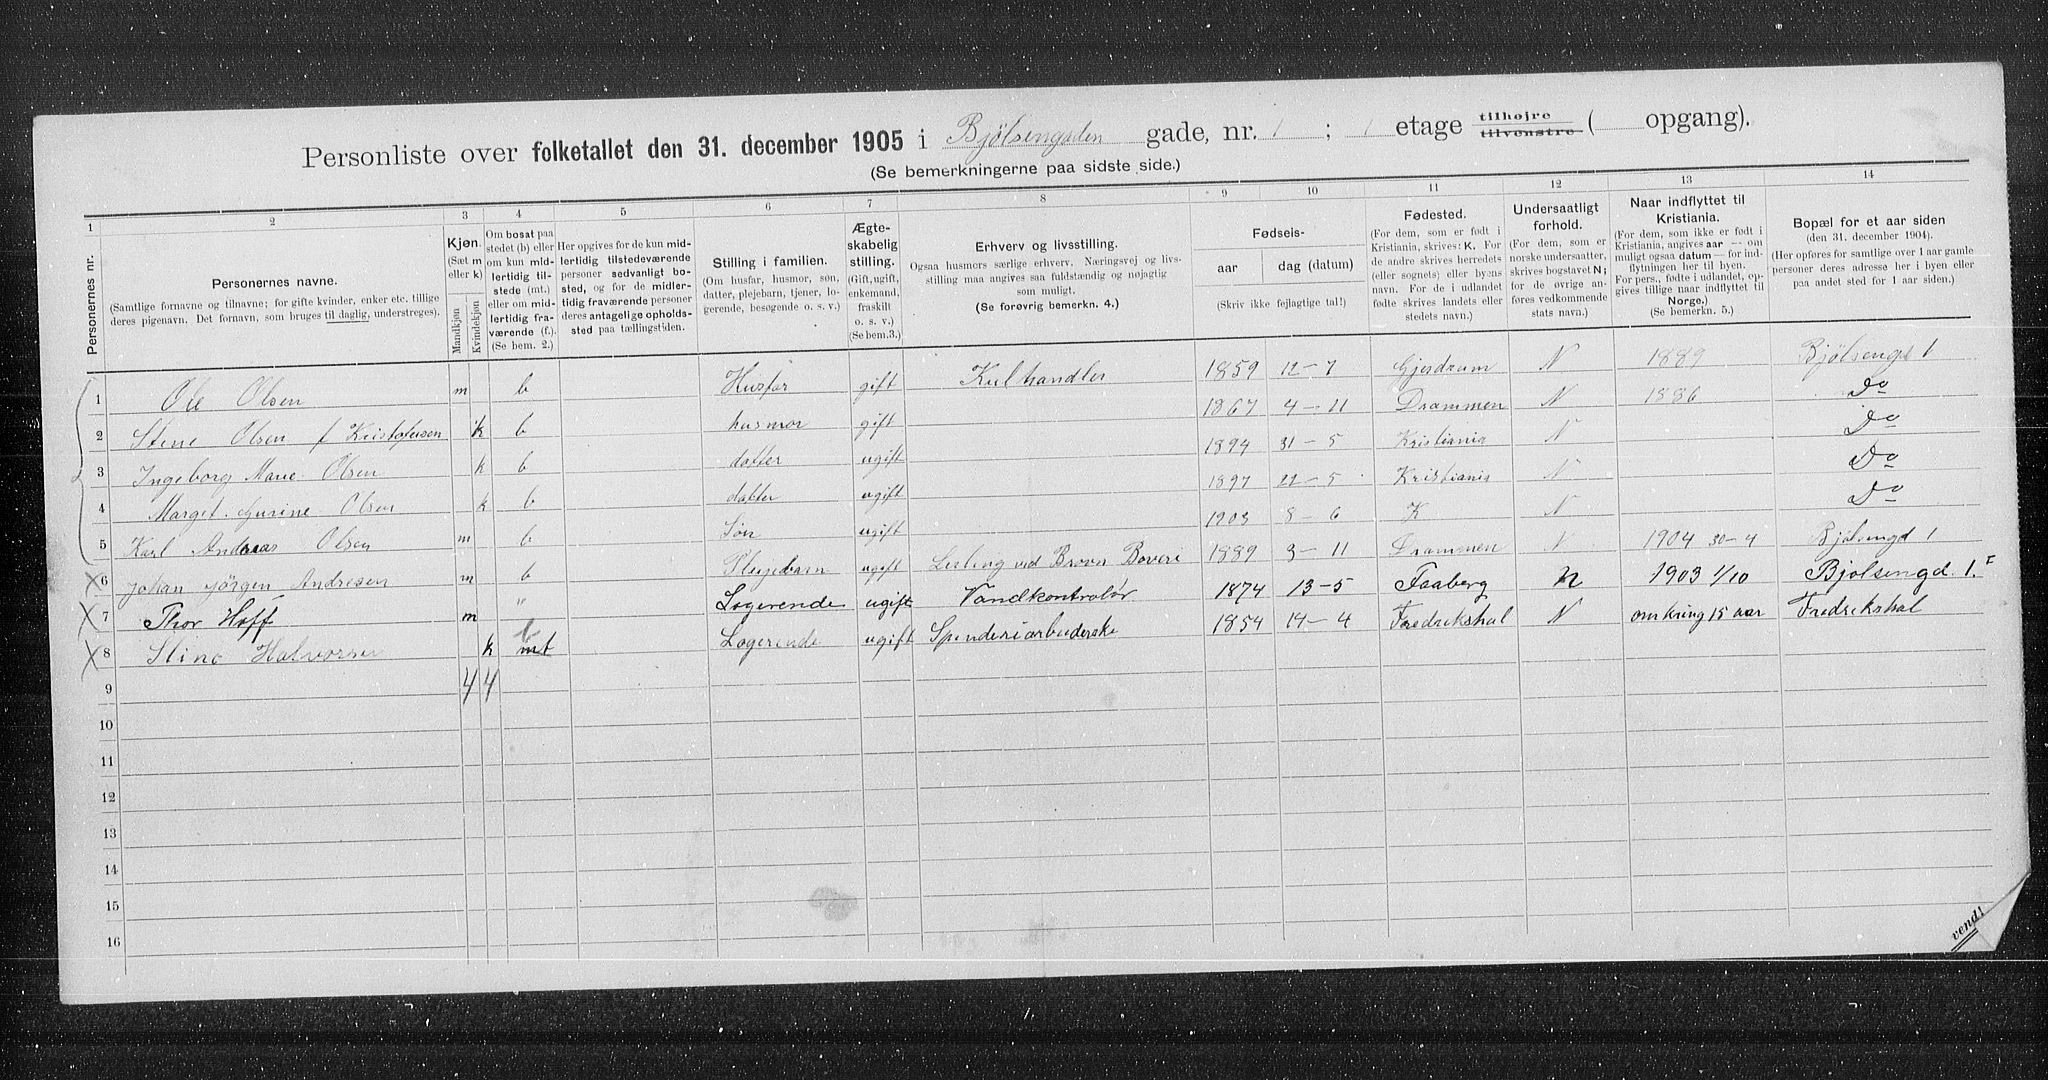 Personliste over folketallet den 31. december 1905 i Bjölsengaden gade, nr. 1 ; 1 etage tilhøjre tilvenstre ( opgang).
(Se bemerkningerne paa sidste side.)
1 2 3 4 5 6 7 8 9 10 11 12 13 14
Personernes nr.
Personernes navne.
(Samtlige fornavne og tilnavne; for gifte kvinder, enker etc. tillige
deres pigenavn. Det fornavn, som bruges til daglig, understreges).
Kjøn.
(Sæt m
eller k)
Mandkjøn
Kvindekjøn
Om bosat paa
stedet (b) eller
om kun mid-
lertidig til-
stede (mt.)
eller om mid-
lertidig fra-
værende (f.).
(Se bem. 2.)
Her opgives for de kun mid-
lertidig tilstedeværende
personer sedvanligt bo-
sted, og for de midler-
tidig fraværende personer
deres antagelige opholds-
sted paa tællingstiden.
Stilling i familien.
(Om husfar, husmor, søn,
datter, plejebarn, tjener, lo-
gerende, besøgende o. s. v.)
Ægte-
skabelig
stilling.
(Gift, ugift,
enkemand,
fraskilt
o. s. v.)
(Se bem.3.)
Erhverv og livsstilling.
Ogsaa husmors særlige erhverv. Næringsvej og livs-
stilling maa angives saa fuldstændig og nøjagtig
som muligt.
(Se forøvrig bemerkn. 4.)
Fødsels-
aar dag (datum)
(Skriv ikke fejlagtige tal!)
Fødested.
(For dem, som er født i
Kristiania, skrives: K. For
de andre skrives herredets
(eller sognets) eller byens
navn. For de i udlandet
fødte skrives landets eller
stedets navn.)
Undersaatligt
forhold.
(For dem, som er
norske undersaatter,
skrives bogstavet N;
for de øvrige an-
føres vedkommende
stats navn.)
Naar indflyttet til
Kristiania.
(For dem, som ikke er født i
Kristiania, angives aar — om
muligt ogsaa datum — for ind-
flytningen her til byen.
For pers., fødte i udlandet, op-
gives tillige naar indflyttet til
Norge.)
(Se bemerkn. 5.)
Bopæl for et aar siden
(den 31. december 1904).
(Her opføres for samtlige over 1 aar gamle
personer deres adresse her i byen eller
paa andet sted for 1 aar siden.)
1 Ole Olsen m b Husfar gift Kulhandler 1859 12-7 Gjerdrum N 1889 Bjölsengd 1
2 Stene Olsen f Kristofersen k b husmor gift 1867 4-11 Drammen N 1886 Do
3 Ingeborg Marie Olsen k b datter ugift 1894 31-5 Kristiania N Do
4 Marget Gurine Olsen k b datter ugift 1897 22-5 Kristiania N Do
5 Karl Andreas Olsen m b Sön ugift 1903 8-6 K N Do
6 Johan Jörgen Andresen m b Plejebarn ugift Lerling ved Brovn Boveri 1889 3-11 Drammen N 1904 30-4 Bjölsengd 1
7 Thor Hoff m " Logerende ugift Vandkontrolør 1874 13-5 Faaberg N 1903 1/10 Bjolsengd. 1. I
8 Stine Halvorsen k b mt Logerende ugift Spinderiarbeiderske 1854 14-4 Fredrikshal N omkring 15 aar Fredrikshal
9 4 4
10
11
12
13
14
15
16
vend!